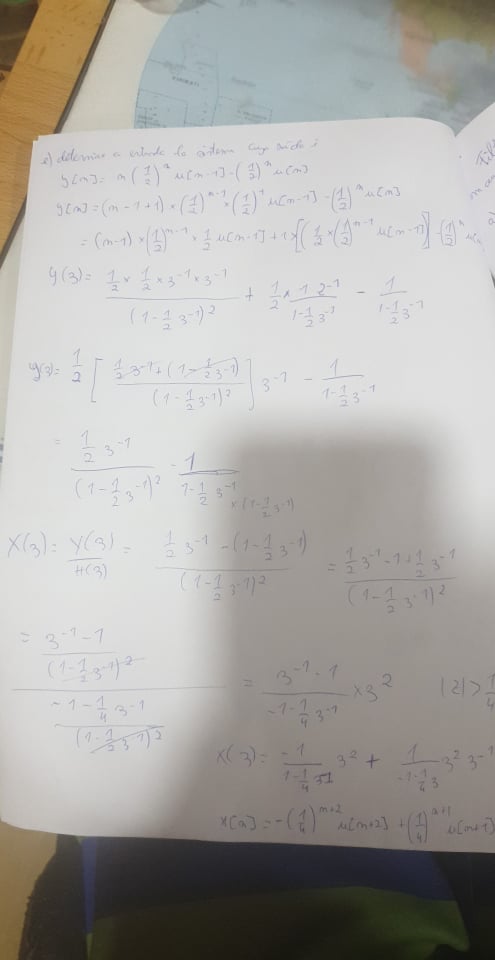 e) determine a entrada do sistema cuja saída é
y[n] = n(1/2)^n u[n-1] - (1/2)^n u[n]
y[n] = (n-1+1) × (1/2)^{n-1} × (1/2)^1 u[n-1] - (1/2)^n u[n]
= (n-1) × (1/2)^{n-1} × 1/2 u[n-1] + 1 × [(1/2 × (1/2)^{n-1} u[n-1])] - (1/2)^n u[
y(z) = (1/2 × 1/2 × z^{-1} × z^{-1})/((1 - 1/2 z^{-1})^2) + 1/2 × (1 z^{-1})/(1 - 1/2 z^{-1}) - 1/(1 - 1/2 z^{-1})
y(z) = 1/2 [(1/2 z^{-1} + (1 - 1/2 z^{-1}))/((1 - 1/2 z^{-1})^2)] z^{-1} - 1/(1 - 1/2 z^{-1})
= (1/2 z^{-1})/((1 - 1/2 z^{-1})^2) - 1/(1 - 1/2 z^{-1}) × (1 - 1/2 z^{-1})
X(z) = Y(z)/H(z) = (1/2 z^{-1} - (1 - 1/2 z^{-1}))/((1 - 1/2 z^{-1})^2) = (1/2 z^{-1} - 1 + 1/2 z^{-1})/((1 - 1/2 z^{-1})^2)
= ((z^{-1} - 1)/((1 - 1/2 z^{-1})^2))/((-1 - 1/4 z^{-1})/((1 - 1/2 z^{-1})^2)) = (z^{-1} - 1)/(-1 - 1/4 z^{-1}) × z^2 |z| > 1/4
x(z) = -1/(1 - 1/4 z1) z^2 + 1/(-1 - 1/4 z) z^2 z^{-1}
x[n] = -(1/4)^{n+2} u[n+2] + (1/4)^{n+1} u[n+1]